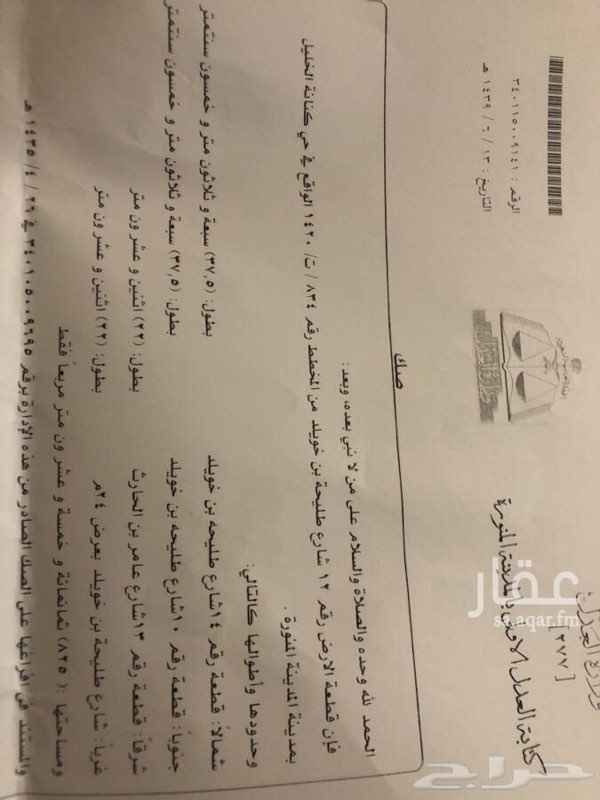 وزارة العدل
[٢٧٧]
كتابة العدل الاولى بالمدينة المنورة
الرقم : ٣٤٠١١٥٠٠٩١٤١
التاريخ : ١٣ / ٦ / ١٤٣٩ هـ
صك
الحمد لله وحده والصلاة والسلام على من لا نبي بعده، وبعد :
فإن قطعة الارض رقم ١٢ شارع طليحة بن خويلد من المخطط رقم ٨٣٤ / ت / ١٤٢٠ الواقع في حي كتانة الخليل
بمدينة المدينة المنورة .
وحدودها وأطوالها كالتالي:
شمالاً: قطعة رقم ١٤ شارع طليحه بن خويلد بطول: (٣٧,٥) سبعة و ثلاثون متر و خمسون سنتمتر
جنوباً: قطعة رقم ١٠ شارع طليحه بن خويلد بطول: (٣٧,٥) سبعة و ثلاثون متر و خمسون سنتمتر
شرقاً: قطعة رقم ١٣ شارع عامر بن الحارث بطول: (٢٢) اثنين و عشرون متر
غرباً: شارع طليحة بن خويلد بعرض ٢٤م بطول: (٢٢) اثنين و عشرون متر
ومساحتها : (٨٢٥) ثمانمائة و خمسة و عشرون متر مربعاً فقط
والمستند في افراغها على الصك الصادر من هذه الإدارة برقم ٣٤٠١٠٥٠٠٩٦٩٥ في ٢٩ / ٤ / ١٤٣٥ هـ
عقار
sa.aqar.fm
حراج